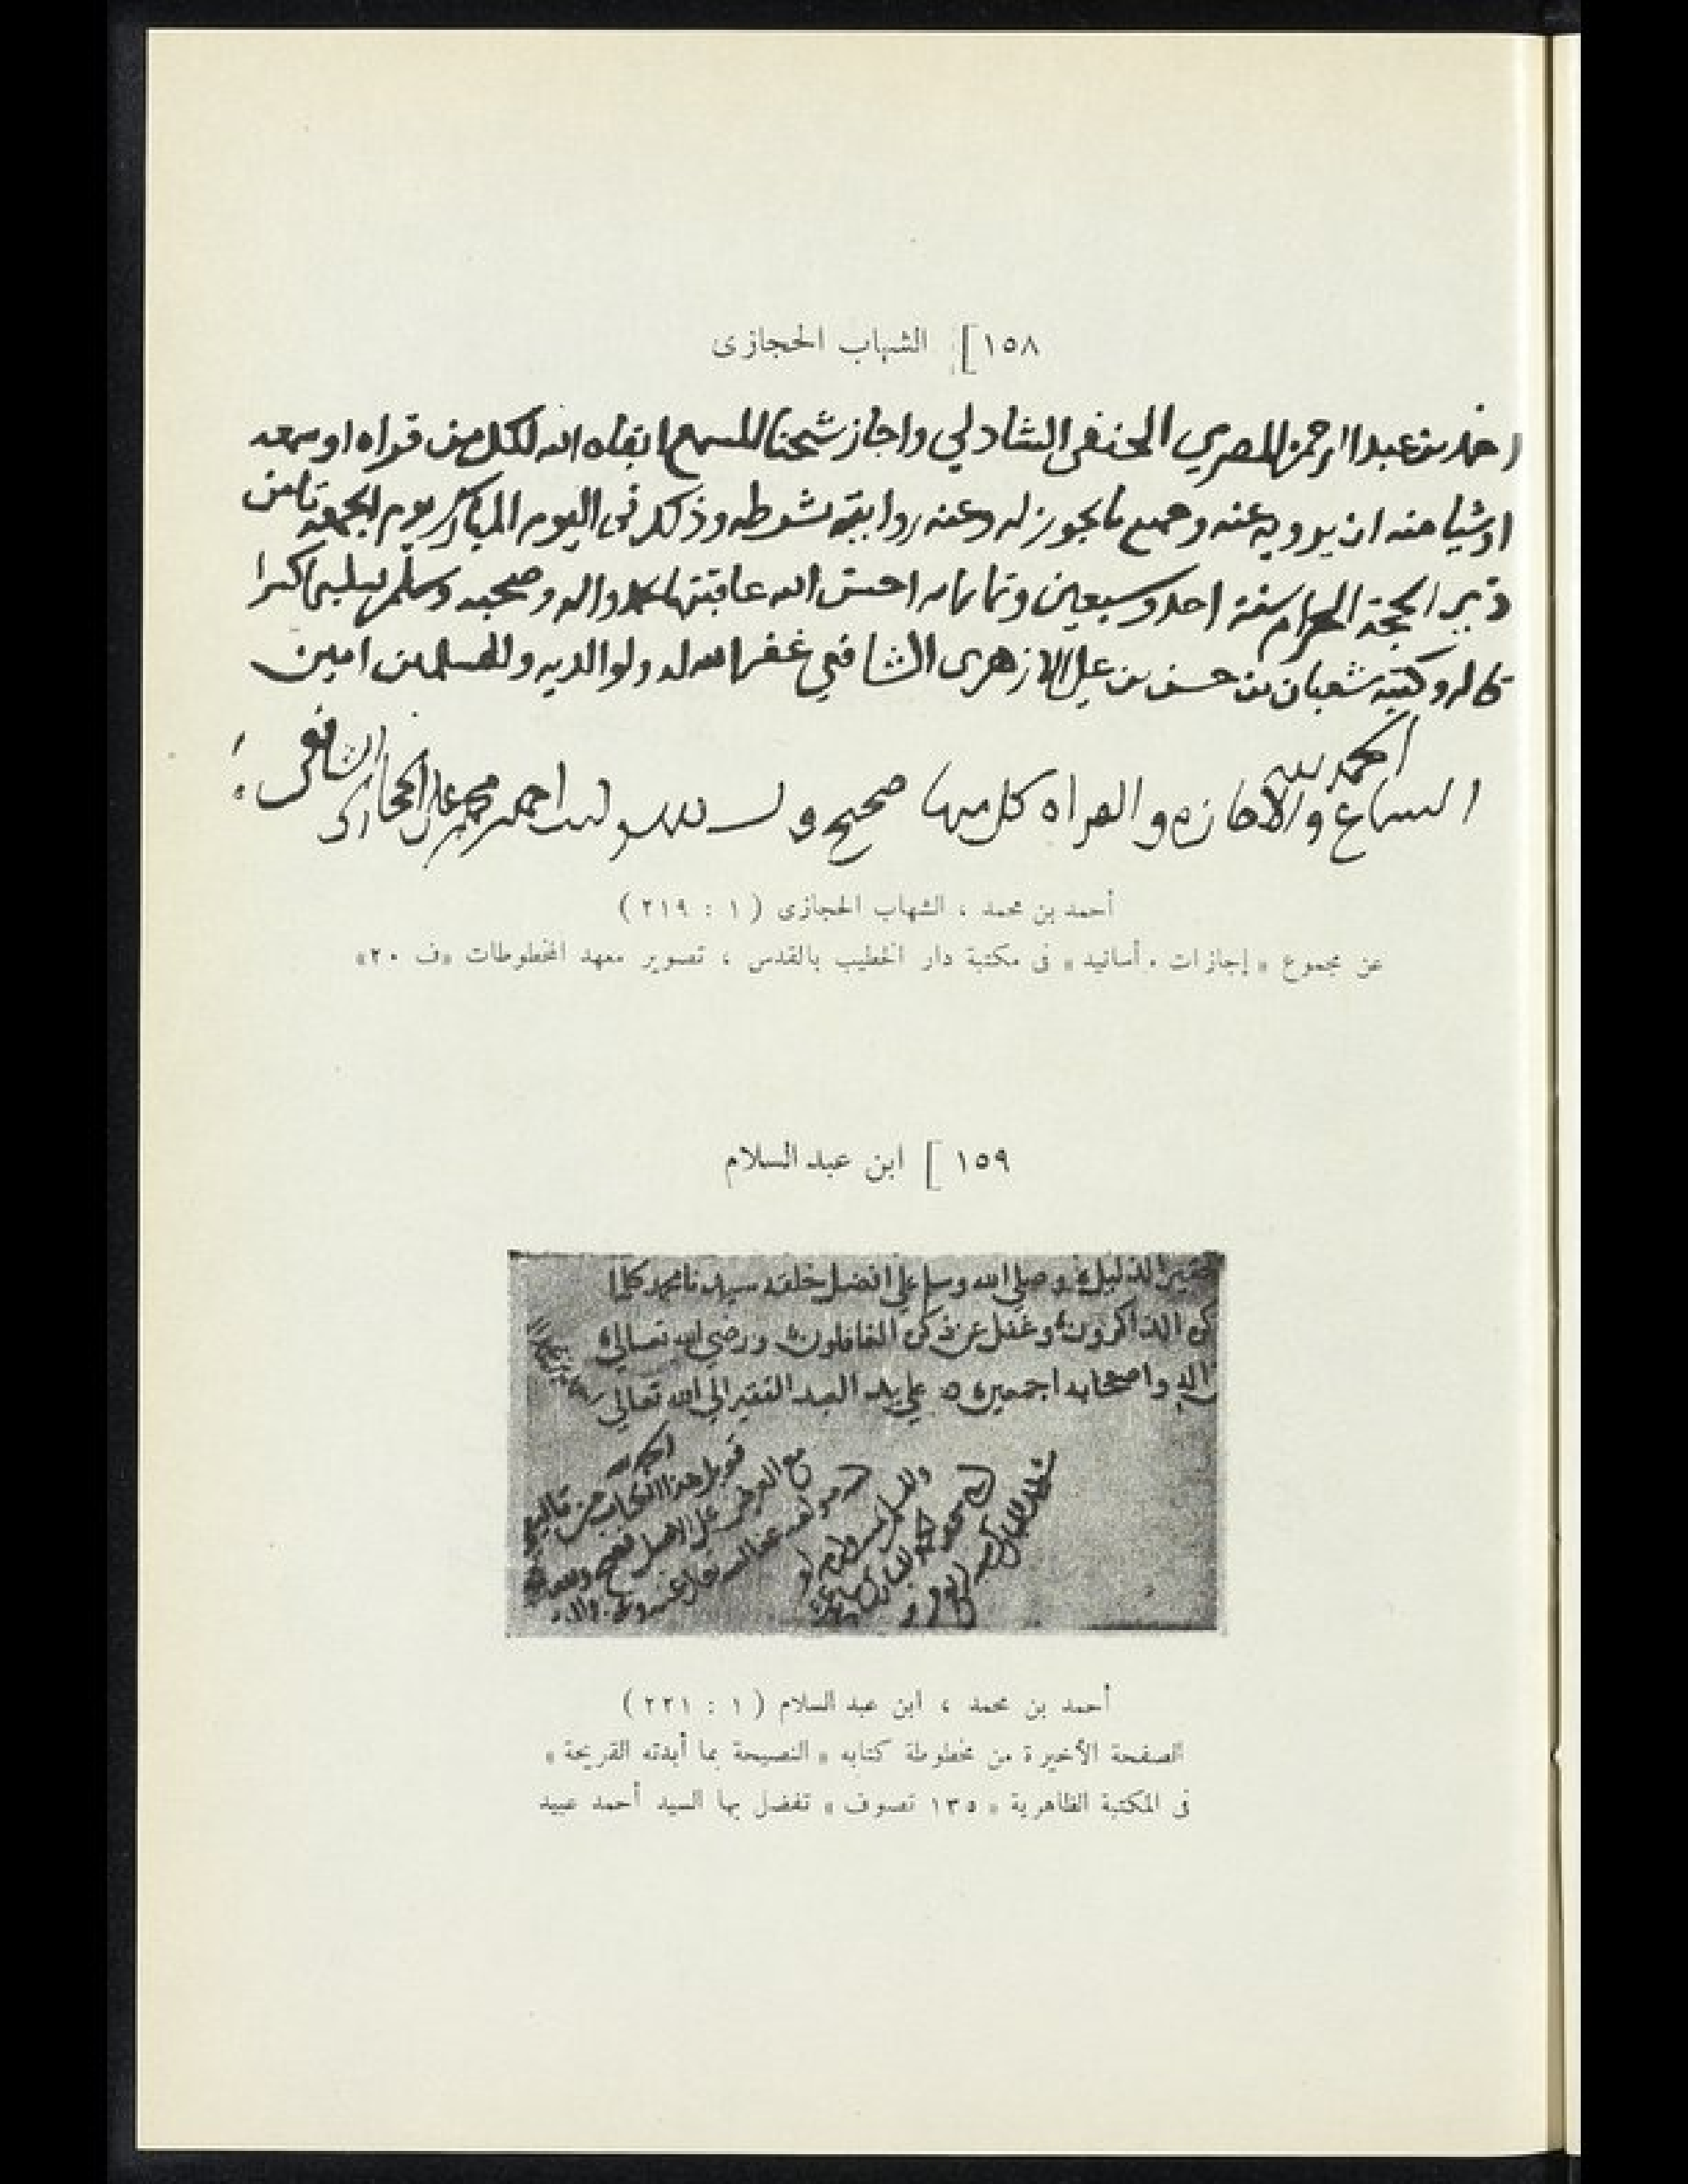 ١٥٨ [ الشهاب الحجازى
احمد بن عبد الرحمن المصري الحنفى الشادلي واجاز شيخنا المسمع ابقاه الله لكل من قراه او سمعه
او شيا منه ان يرويه عنه وجميع ما يجوز له وعنه روايته بشرطه وذلك فى اليوم المبارك يوم الجمعه ثامن
الحجة الحرام سنة احد وسبعين وثمانمايه احسن الله عاقبتها واله وصحبه وسلم تسليما كثيرا
قاله وكتبه شعبان بن حسن بن علي الازهرى الشافعي غفر الله له ولوالديه وللمسلمين امين
الحمد لله
السماع والاجازه والقراه كل منها صحيح وكتب احمد بن محمد بن على الحجازى الشافعى
أحمد بن محمد ، الشهاب الحجازى ( ١ : ٢١٩ )
عن مجموع « إجازات . أسانيد » فى مكتبة دار الخطيب بالقدس ، تصوير معهد المخطوطات «ف ٢٠»
١٥٩ [ ابن عبد السلام
الذليل وصلى الله وسلم على افضل خلقه سيدنا محمد كلما
الذاكرون وغفل عن ذكره الغافلون ورضي الله تعالى
اله واصحابه اجمعين على يد العبد الفقير الي الله تعالى
الحمد لله
قوبل هذا الكتاب من
مع العرض على الاصل
أحمد بن محمد ، ابن عبد السلام ( ١ : ٢٢١ )
الصفحة الأخيرة من مخطوطة كتابه « النصيحة بما أبدته القريحة »
فى المكتبة الظاهرية « ١٣٥ تصوف » تفضل بها السيد أحمد عبيد